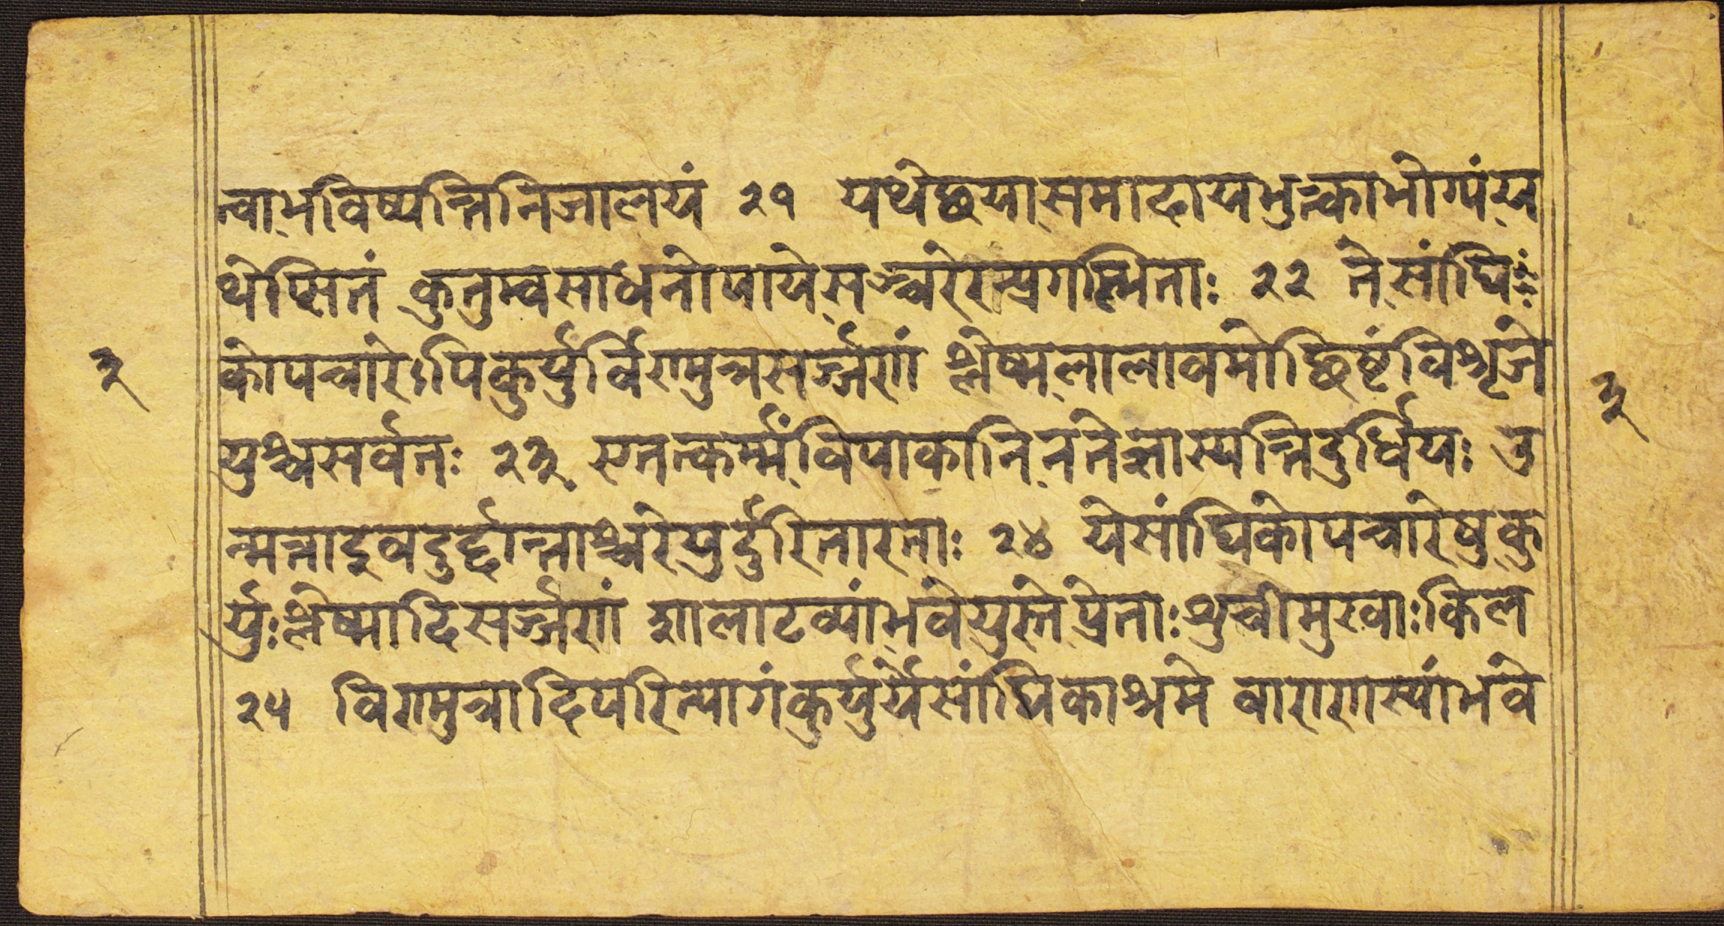 त्वाभविष्यन्तिनिजालयं २१ यथेछयासमादायभुत्काभोग्यंय
थेप्सितं कुतुम्वसाधनोपायेसञ्चरेरन्प्रगल्भिताः २२ तेसांघि
कोपचारेऽपिकुर्युर्विण्मुत्रसर्ज्जणं श्लेष्मलालावमोछिष्टंविशृजे
युश्चसर्वतः २३ एतत्कर्म्मविपाकानिनतेज्ञास्यन्तिदुर्धियः उ
न्मत्तादुवदुर्द्दान्ताश्चरेयुर्दुरितारताः २४ येसांघिकोपचारेषुकु
र्युःश्लेष्मादिसर्ज्जणं शालाटव्यांभवेयुस्तेप्रेताःशुचीमुखाःकिल
२५ विण्मुत्रादिपरित्यागंकुर्युर्येसांघिकाश्रमे वाराणस्यांभवे
३
३